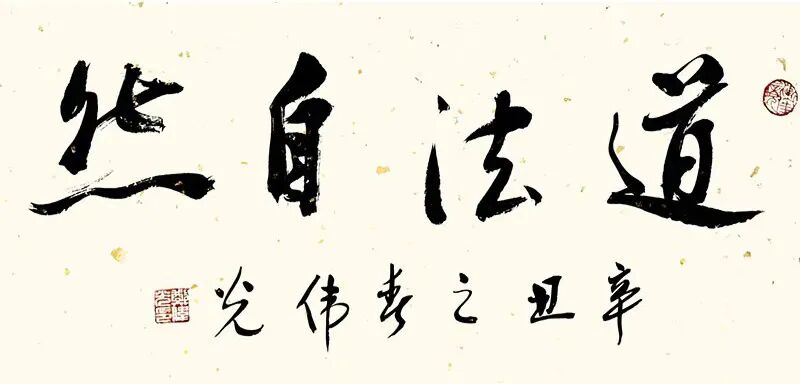 道法自然
辛丑之春伟光